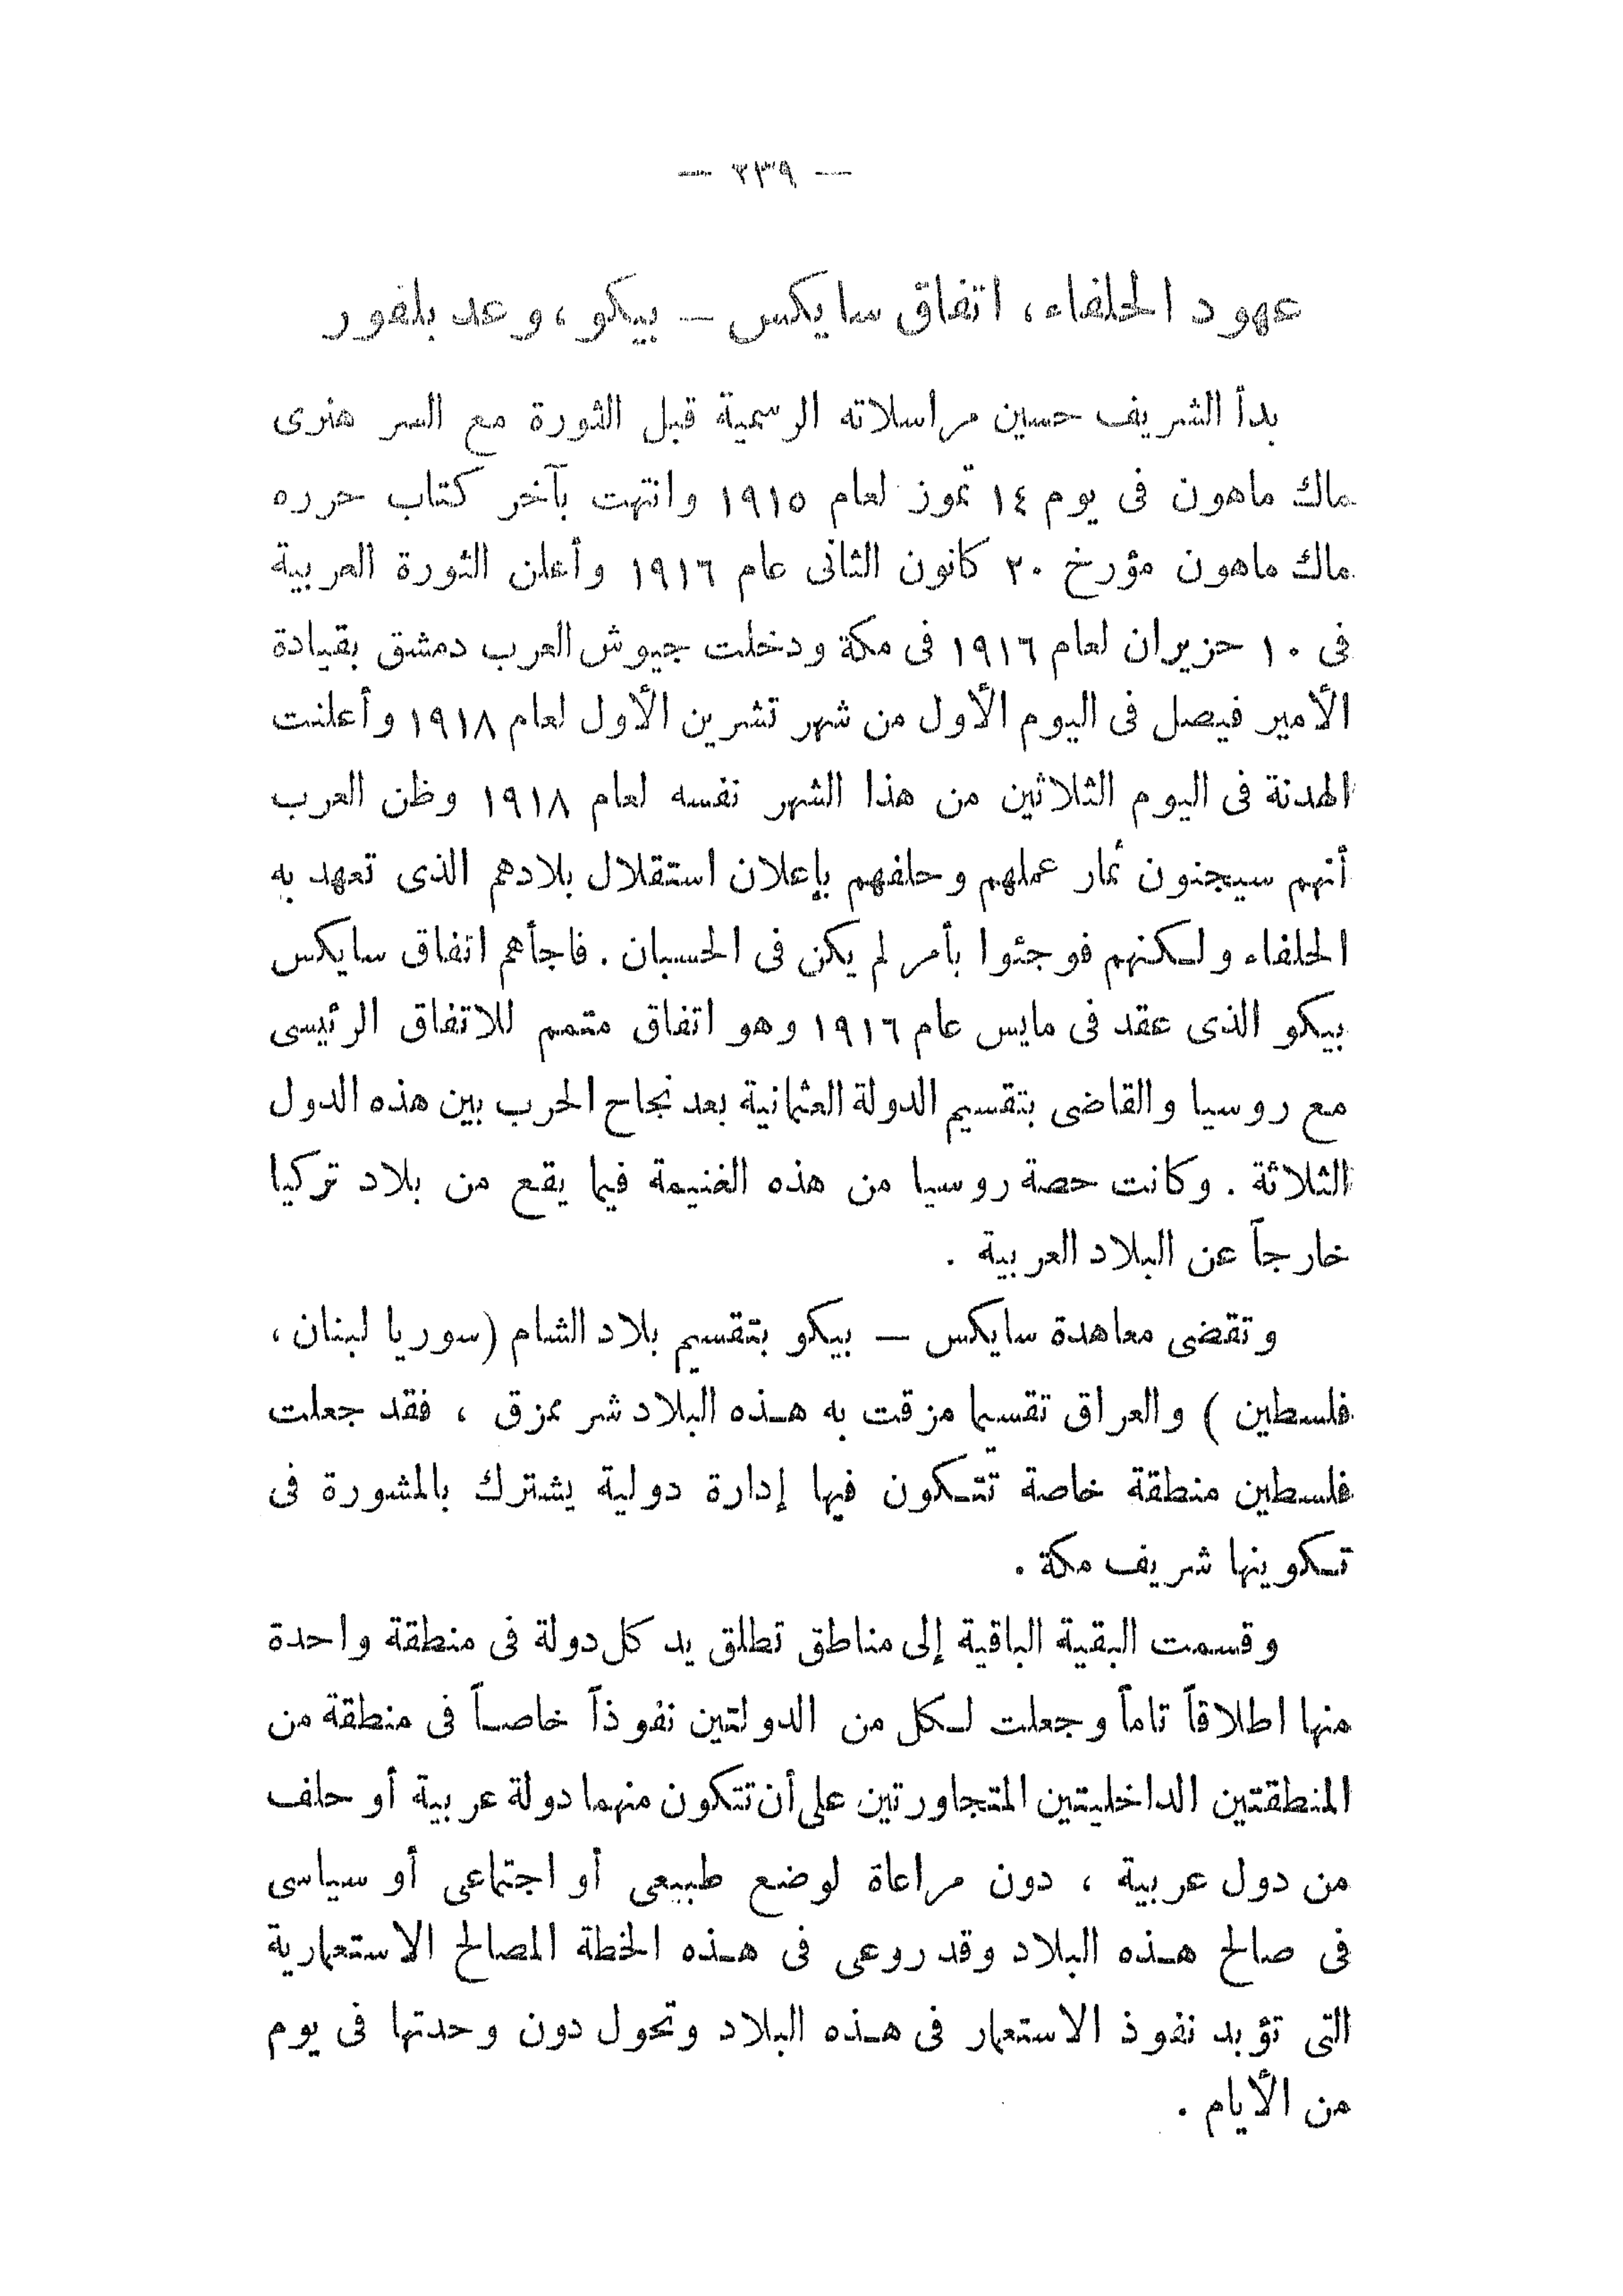 — ٢٣٩ —
عهود الحلفاء، اتفاق سايكس — بيكو، وعد بلفور
بدأ الشريف حسين مراسلاته الرسمية قبل الثورة مع السر هنرى
ماك ماهون فى يوم ١٤ تموز لعام ١٩١٥ وانتهت بآخر كتاب حرره
ماك ماهون مؤرخ ٣٠ كانون الثانى عام ١٩١٦ وأعلن الثورة العربية
فى ١٠ حزيران لعام ١٩١٦ فى مكة ودخلت جيوش العرب دمشق بقيادة
الأمير فيصل فى اليوم الأول من شهر تشرين الأول لعام ١٩١٨ وأعلنت
الهدنة فى اليوم الثلاثين من هذا الشهر نفسه لعام ١٩١٨ وظن العرب
أنهم سيجنون ثمار عملهم وحلفهم بإعلان استقلال بلادهم الذى تعهد به
الحلفاء ولكنهم فوجئوا بأمر لم يكن فى الحسبان. فاجأهم اتفاق سايكس
بيكو الذى عقد فى مايس عام ١٩١٦ وهو اتفاق متمم للاتفاق الرئيسى
مع روسيا والقاضى بتقسيم الدولة العثمانية بعد نجاح الحرب بين هذه الدول
الثلاثة . وكانت حصة روسيا من هذه الغنيمة فيما يقع من بلاد تركيا
خارجاً عن البلاد العربية .
وتقضى معاهدة سايكس — بيكو بتقسيم بلاد الشام (سوريا لبنان ،
فلسطين ) والعراق تقسيما مزقت به هذه البلاد شر ممزق ، فقد جعلت
فلسطين منطقة خاصة تتكون فيها إدارة دولية يشترك بالمشورة فى
تكوينها شريف مكة .
وقسمت البقية الباقية إلى مناطق تطلق يد كل دولة فى منطقة واحدة
منها اطلاقاً تاماً وجعلت لكل من الدولتين نفوذاً خاصاً فى منطقة من
المنطقتين الداخليتين المتجاورتين على أن تتكون منهما دولة عربية أو حلف
من دول عربية ، دون مراعاة لوضع طبيعى أو اجتماعى أو سياسى
فى صالح هذه البلاد وقد روعى فى هذه الخطة المصالح الاستعمارية
التى تؤبد نفوذ الاستعمار فى هذه البلاد وتحول دون وحدتها فى يوم
من الأيام .